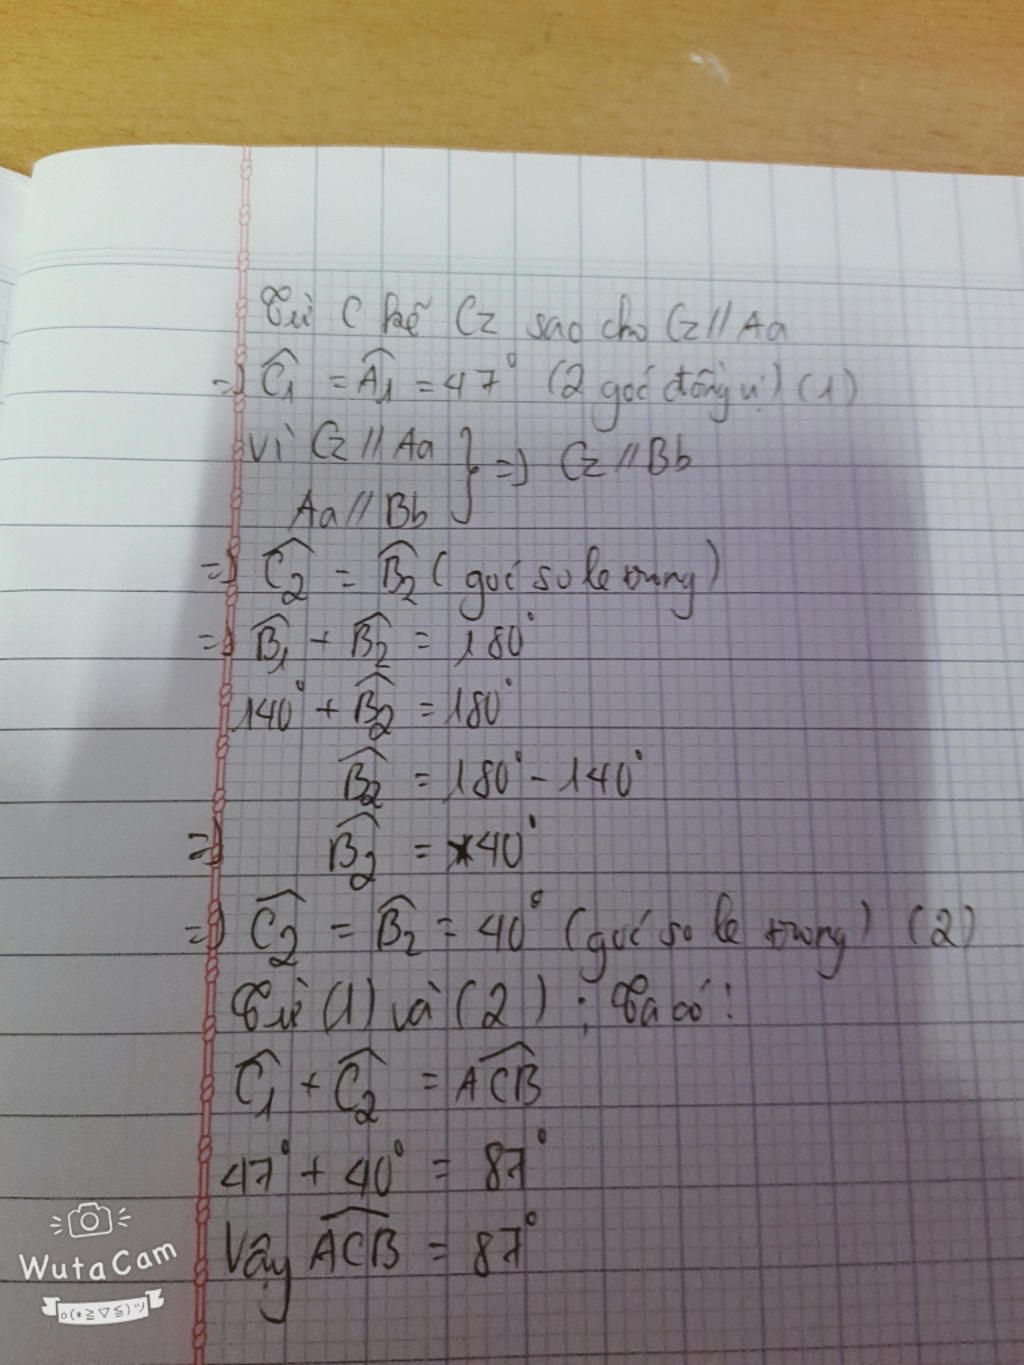 Từ C kẻ Cz sao cho Cz // Aa
=> Ĉ1 = Â1 = 47° (2 góc đồng vị) (1)
Vì Cz // Aa } => Cz // Bb
Aa // Bb
=> Ĉ2 = B̂2 ( góc so le trong)
=> B̂1 + B̂2 = 180°
140° + B̂2 = 180°
B̂2 = 180° - 140°
=> B̂2 = 40°
=> Ĉ2 = B̂2 = 40° (góc so le trong) (2)
Từ (1) và (2) ; Ta có :
Ĉ1 + Ĉ2 = AĈB
47° + 40° = 87°
Vậy AĈB = 87°
WutaCam
o(*≧▽≦)ツ